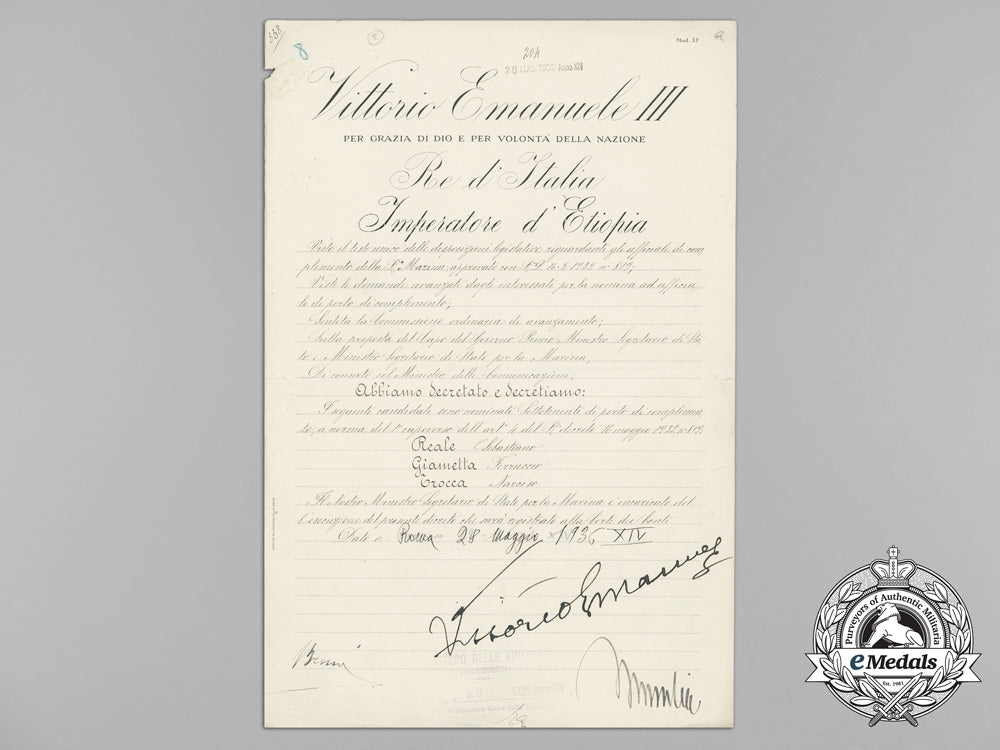 338
8
5
Mod. 57
204
20 LUG. 1936 Anno XIV
Vittorio Emanuele III
PER GRAZIA DI DIO E PER VOLONTA' DELLA NAZIONE
Re d'Italia
Imperatore d'Etiopia
Visto il testo unico delle disposizioni legislative riguardanti gli ufficiali di com
plemento della Ra Marina, approvato con R.D. 16-5-1932 n° 819;
Viste le domande avanzate dagli interessati per la nomina ad ufficia
le di porto di complemento;
Sentita la Commissione ordinaria di avanzamento;
Sulla proposta del Capo del Governo Primo Ministro Segretario di Sta
to e Ministro Segretario di Stato per la Marina,
Di concerto col Ministro delle Comunicazioni;
Abbiamo decretato e decretiamo:
I seguenti candidati sono nominati Sottotenenti di porto di complemen
to, a norma del 1° capoverso dell'art° 4 del R° decreto 16 maggio 1932 n° 819:
Reale Sebastiano
Giametta Ferruccio
Trocca Narciso
Il Nostro Ministro Segretario di Stato per la Marina è incaricato del
l'esecuzione del presente decreto che sarà registrato alla Corte dei Conti.
Dato a Roma 28 maggio 1936 XIV
Vittorio Emanuele
DELLE
1936 Anno XIV
Purveyors of Authentic Militaria
eMedals
Est. 1981